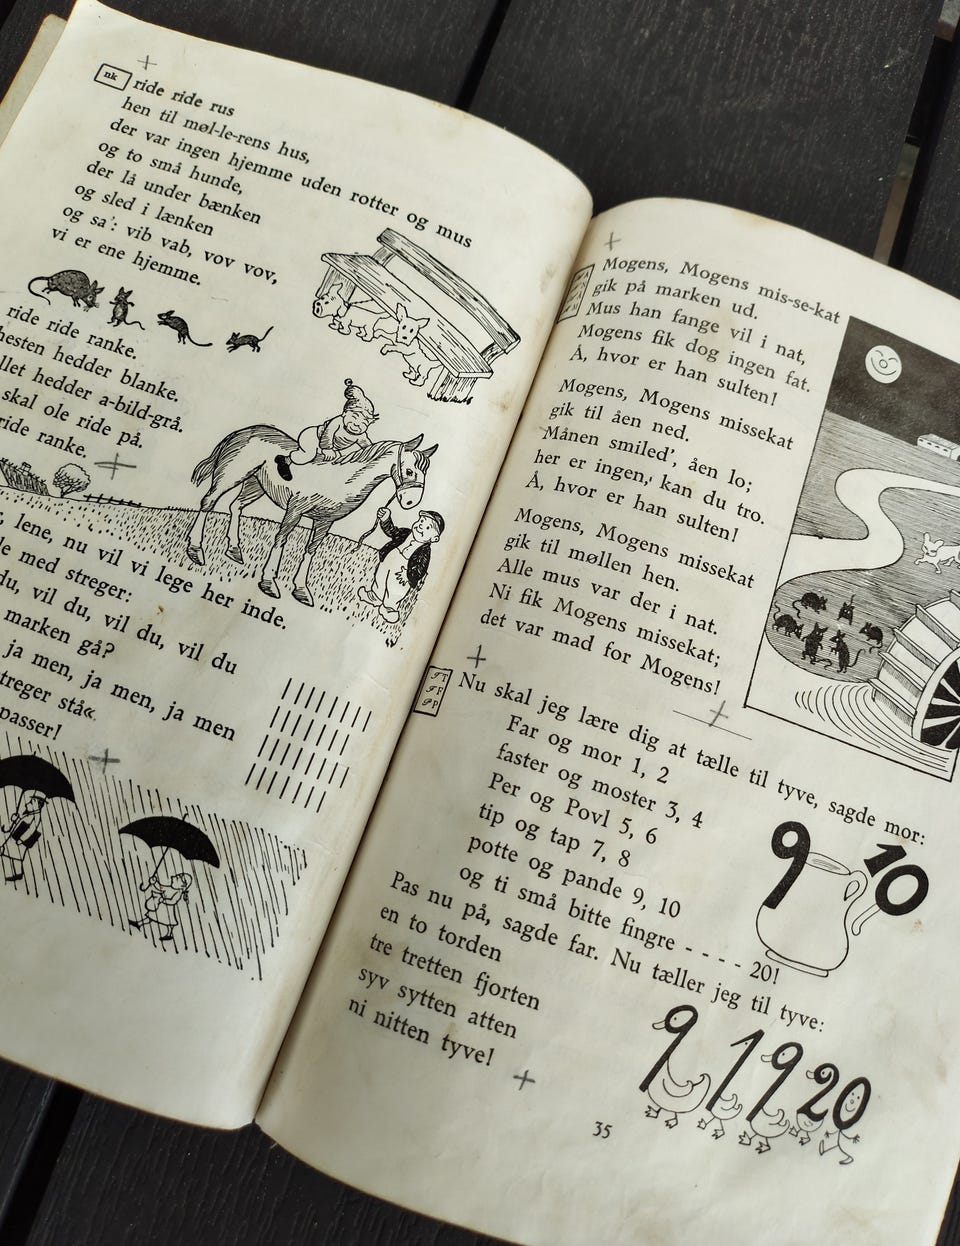 nk
ride ride rus
hen til møl-le-rens hus,
der var ingen hjemme uden rotter og mus
og to små hunde,
der lå under bænken
og sled i lænken
og sa': vib vab, vov vov,
vi er ene hjemme.
ride ride ranke.
hesten hedder blanke.
llet hedder a-bild-grå.
skal ole ride på.
ride ranke.
lene, nu vil vi lege her inde.
le med streger:
du, vil du, vil du, vil du
marken gå?
ja men, ja men, ja men
treger stå«
passer!
Mogens, Mogens mis-se-kat
gik på marken ud.
Mus han fange vil i nat,
Mogens fik dog ingen fat.
Å, hvor er han sulten!
Mogens, Mogens missekat
gik til åen ned.
Månen smiled', åen lo;
her er ingen, kan du tro.
Å, hvor er han sulten!
Mogens, Mogens missekat
gik til møllen hen.
Alle mus var der i nat.
Ni fik Mogens missekat;
det var mad for Mogens!
Nu skal jeg lære dig at tælle til tyve, sagde mor:
Far og mor 1, 2
faster og moster 3, 4
Per og Povl 5, 6
tip og tap 7, 8
potte og pande 9, 10
og ti små bitte fingre - - - - 20!
9 10
Pas nu på, sagde far. Nu tæller jeg til tyve:
en to torden
tre tretten fjorten
syv sytten atten
ni nitten tyve!
9 19 20
35